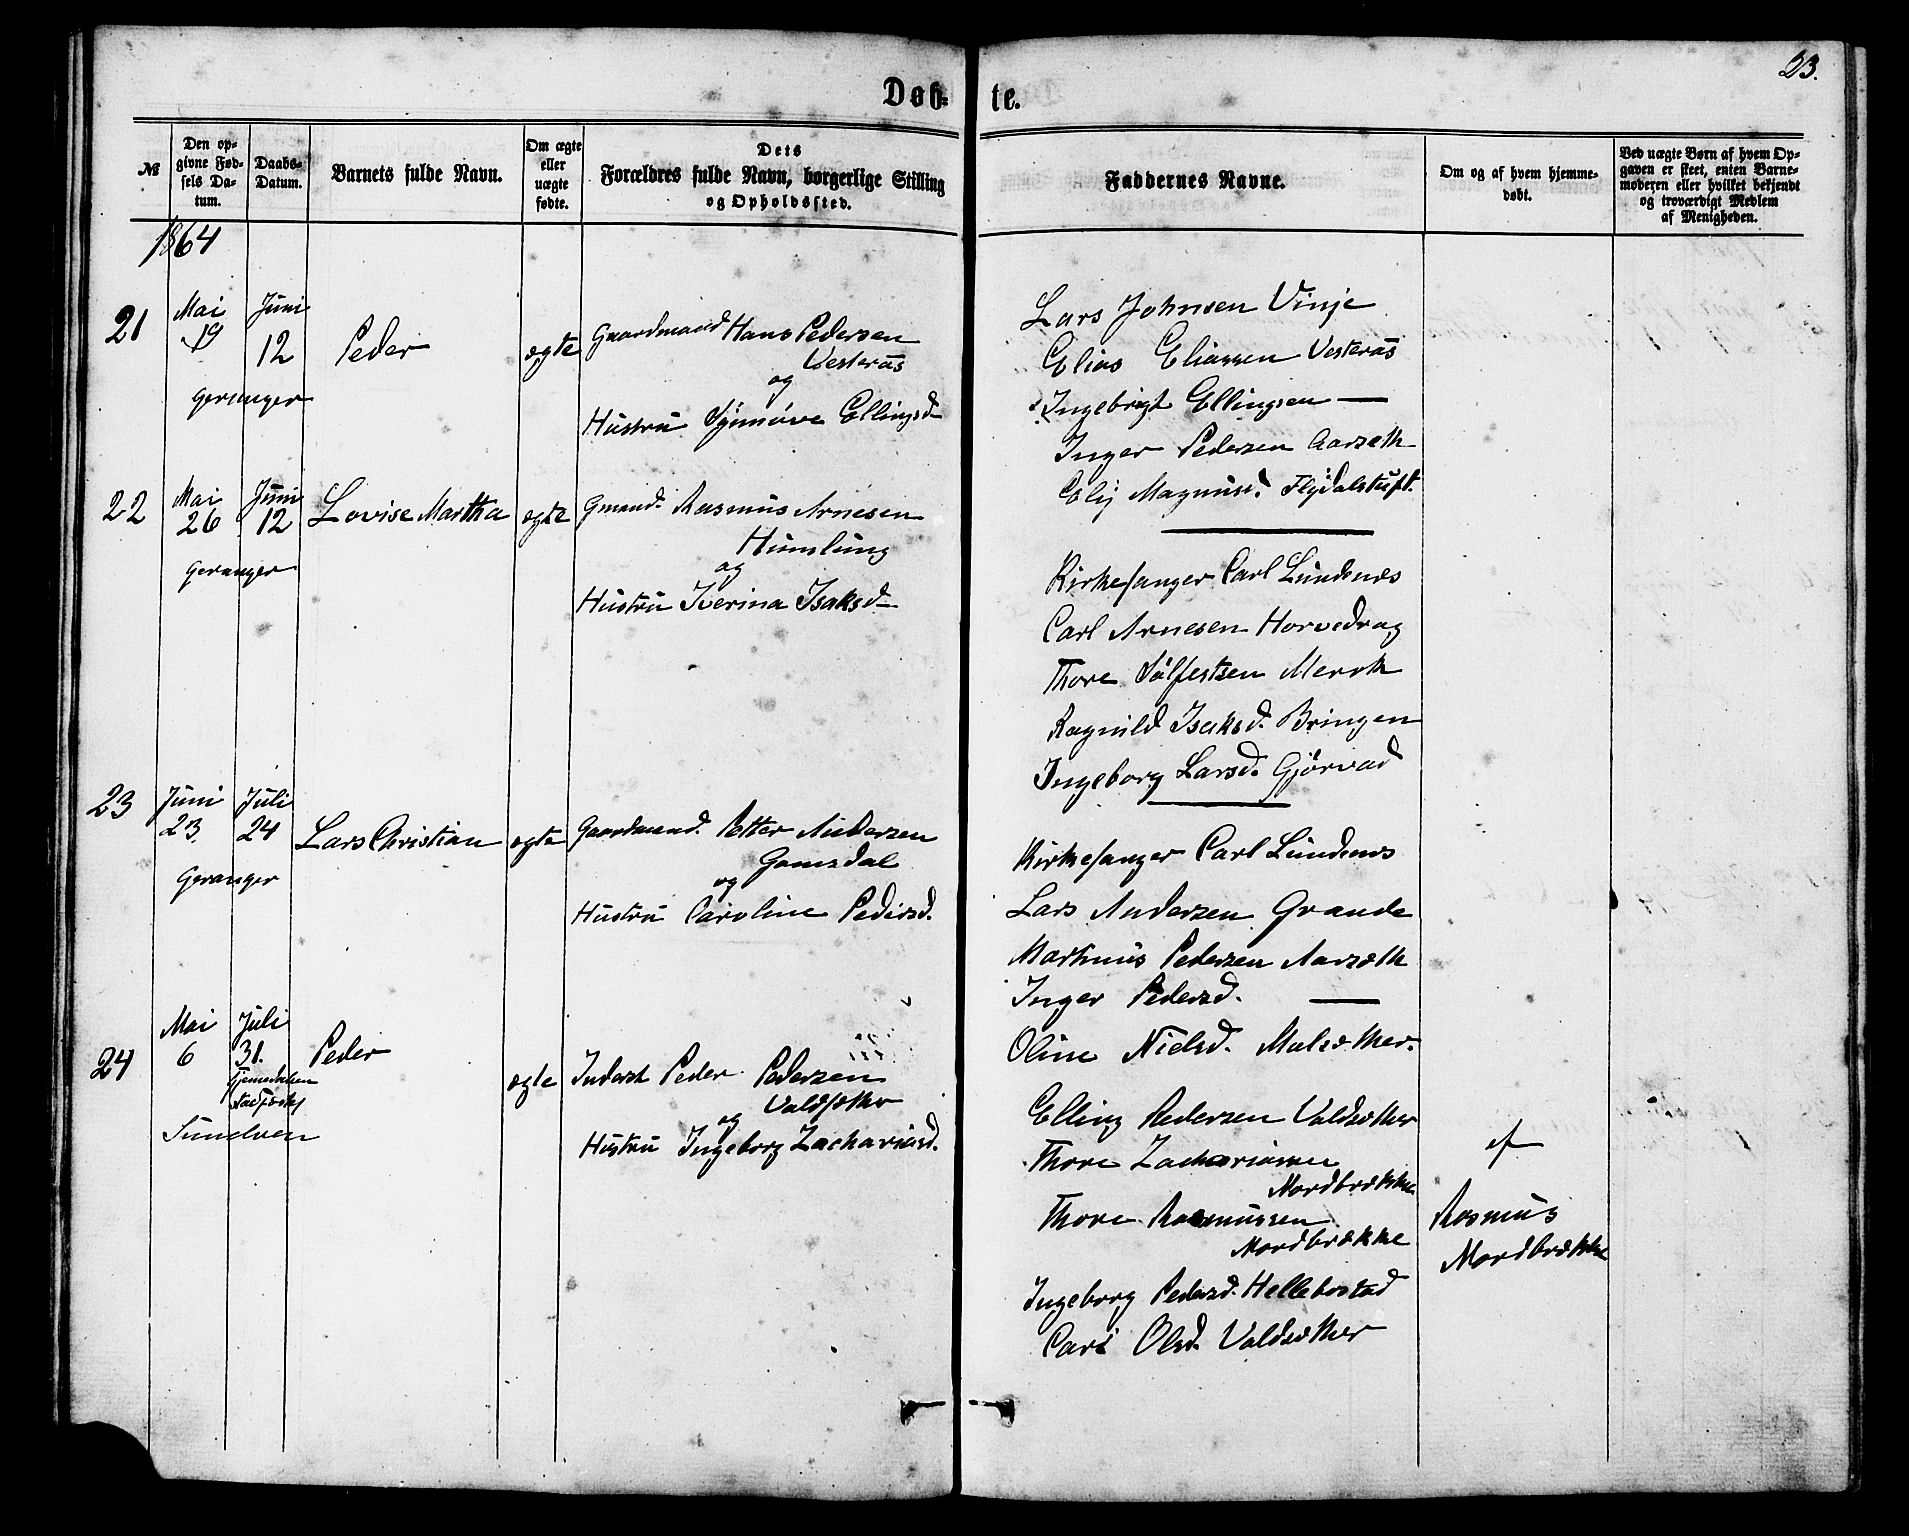 23.
Døb-
te.
№
Den op-
givne Fød-
sels Da-
tum.
Daabs-
Datum.
Barnets fulde Navn.
Om ægte
eller
uægte
fødte.
Dets
Forældres fulde Navn, borgerlige Stilling
og Opholdssted.
Faddernes Navne.
Om og af hvem hjemme-
døbt.
Ved uægte Børn af hvem Op-
gaven er skeet, enten Barne-
moderen eller hvilket bekjendt
og troværdigt Medlem
af Menigheden.
1864
21
Mai
19
Juni
12
Geranger
Peder
ægte
Gaardmand Hans Pedersen
Vesteraas
og
Hustru Synnøve Ellingsd
Lars Johnsen Vinje
Elias Eliassen Vesteraas
Ingebrigt Ellingsen —
Inger Pedersen Aarseth
Elij Magnusd. Flydalstuft.
22
Mai
26
Juni
12
Geranger
Lovise Martha
ægte
Gmand. Rasmus Arnesen
Humlung
og
Hustru Iverina Isaksd
Kirkesanger Carl Lundenes
Carl Arnesen Horvedrag
Thore Sølfestsen Merok
Ragnild Isaksd. Bringen
Ingeborg Larsd. Gjørvad
23
Juni
23
Juli
24
Geranger
Lars Christian
ægte
Gaardmand. Petter Andersen
Gomsdal
og
Hustru Caroline Pedersd.
Kirkesanger Carl Lundenes
Lars Andersen Grande
Martinus Pedersen Aarseth
Inger Pedersd. —
Oline Nielsd. Malsæther.
24
Mai
6
Juli
31.
Sunelven
Peder
ægte
Inderst Peder Pedersen
Valdsæther
og
Hustru Ingeborg Zachariasd.
Elling Pedersen Valdsæther
Thore Zachariassen
Nordbrække
Thore Rasmussen
Nordbrække
Ingeborg Pedersd. Hellebostad
Cari Olsd. Valdsæther
af
Rasmus
Nordbrække